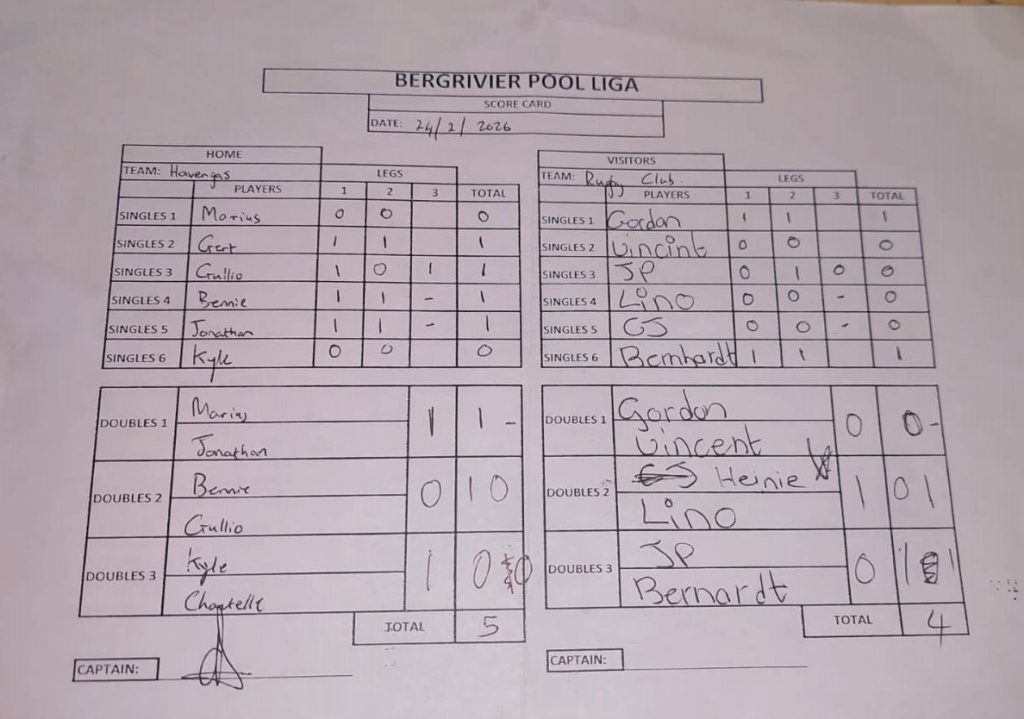 BERGRIVIER POOL LIGA
SCORE CARD
DATE: 24/2/2026
HOME
TEAM: Havengas LEGS
PLAYERS 1 2 3 TOTAL
SINGLES 1 Marius 0 0 0
SINGLES 2 Gert 1 1 1
SINGLES 3 Gullio 1 0 1 1
SINGLES 4 Bennie 1 1 - 1
SINGLES 5 Jonathan 1 1 - 1
SINGLES 6 Kyle 0 0 0
DOUBLES 1 Marius 1 1 -
Jonathan
DOUBLES 2 Bennie 0 1 0
Gullio
DOUBLES 3 Kyle 1 0 0
Chantelle
TOTAL 5
CAPTAIN:
VISITORS
TEAM: Rugby Club. LEGS
PLAYERS 1 2 3 TOTAL
SINGLES 1 Gordon 1 1 1
SINGLES 2 Vincint 0 0 0
SINGLES 3 JP 0 1 0 0
SINGLES 4 Lino 0 0 - 0
SINGLES 5 CJ 0 0 - 0
SINGLES 6 Bernhardt 1 1 1
DOUBLES 1 Gordon 0 0 -
Vincent
DOUBLES 2 Heinie 1 0 1
Lino
DOUBLES 3 JP 0 1 1
Bernardt
TOTAL 4
CAPTAIN: